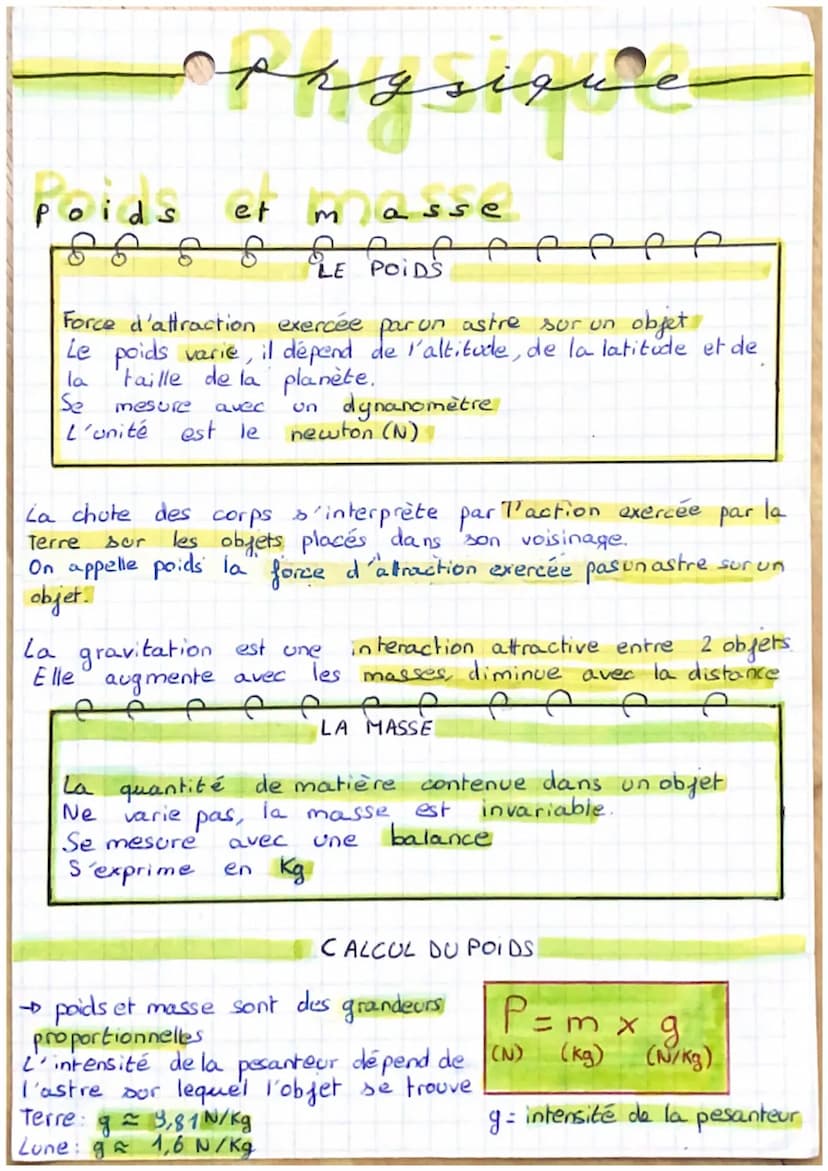 Physique
Poids et masse
LE POIDS
Force d'attraction exercée par un astre sur un objet
Le poids varie, il dépend de l'altitude, de la latitude et de
la taille de la planète.
Se mesure avec un dynanomètre
L'unité est le newton (N)
La chute des corps s'interprète par l'action exercée par la
Terre sur les objets placés dans son voisinage.
On appelle poids la force d'attraction exercée pas un astre sur un
objet.
La gravitation est une interaction attractive entre 2 objets
Elle augmente avec les masses, diminue avec la distance
LA MASSE
La quantité de matière contenue dans un objet
Ne varie pas, la masse est invariable.
Se mesure avec une balance
S'exprime en Kg
CALCUL DU POIDS
→ poids et masse sont des grandeurs
proportionnelles
L'intensité de la pesanteur dépend de
l'astre sur lequel l'objet se trouve
Terre : g ≈ 9,81 N/Kg
Lune : g ≈ 1,6 N/Kg
P = m x g
(N) (Kg) (N/Kg)
g = intensité de la pesanteur